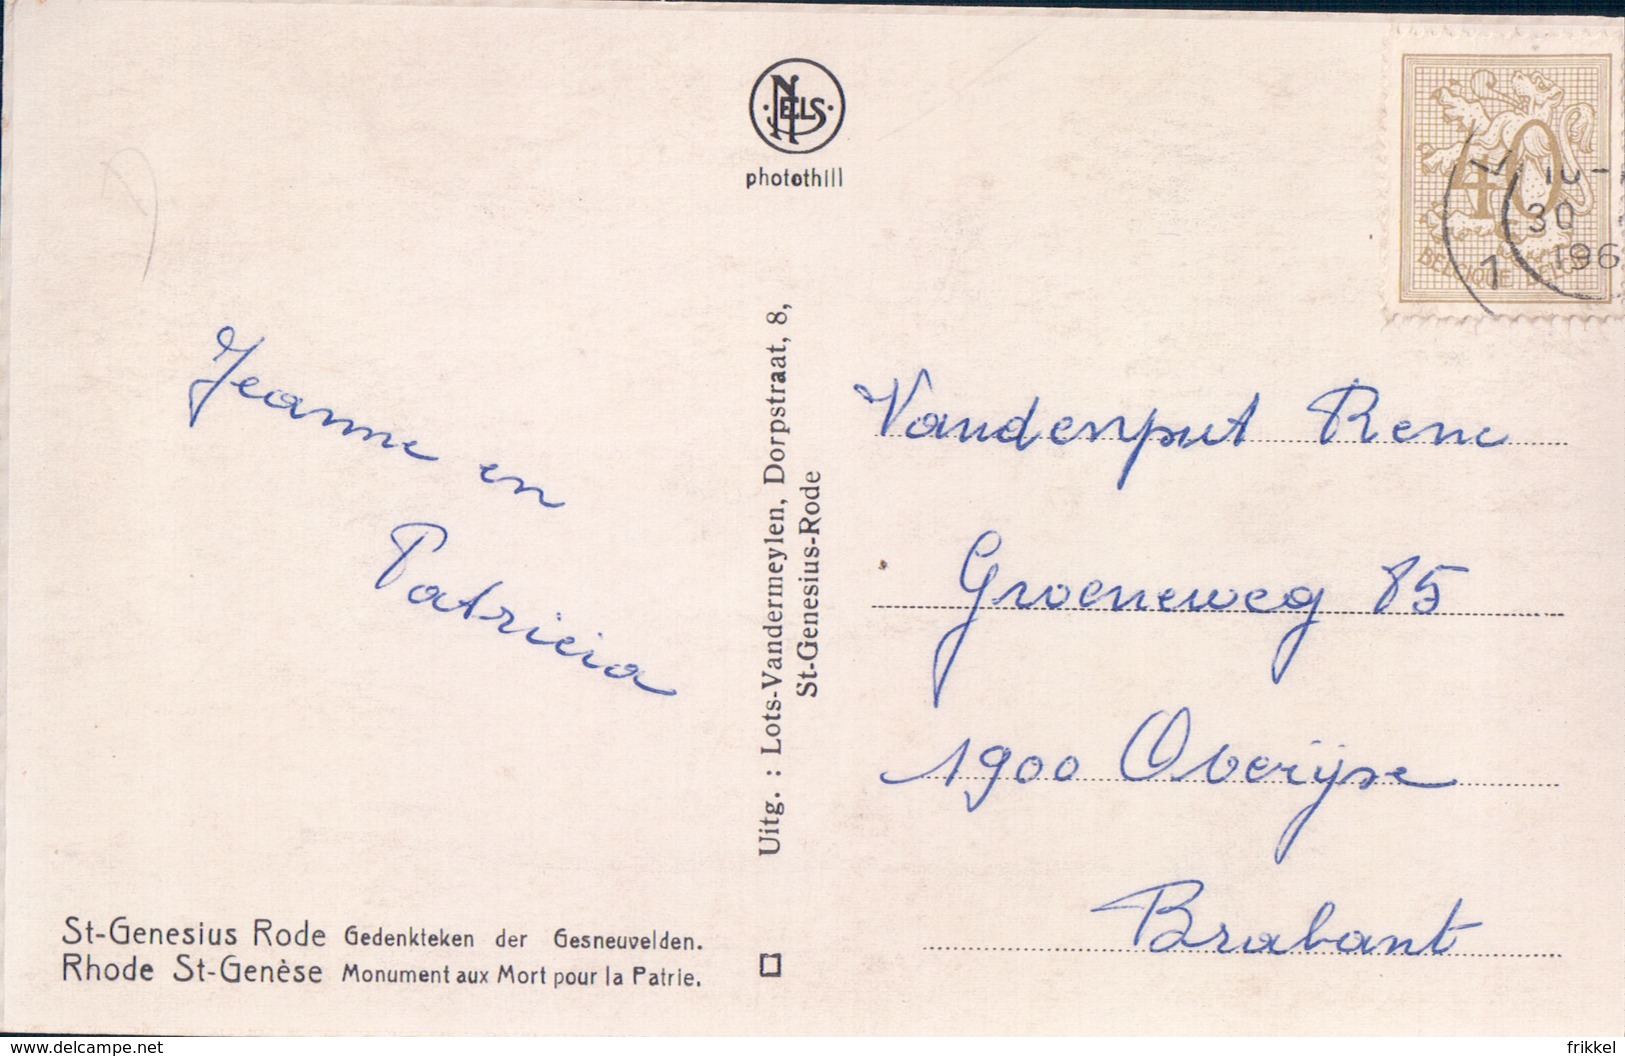 NELS
photothill
40
BELGIQUE BELGIE
30
196
1
Jeanne en
Patricia
Uitg. : Lots-Vandermeylen, Dorpstraat, 8,
St-Genesius-Rode
Vandenput Rene
Groeneweg 85
1900 Overijse
Brabant
St-Genesius Rode Gedenkteken der Gesneuvelden.
Rhode St-Genèse Monument aux Mort pour la Patrie.
www.delcampe.net
frikkel